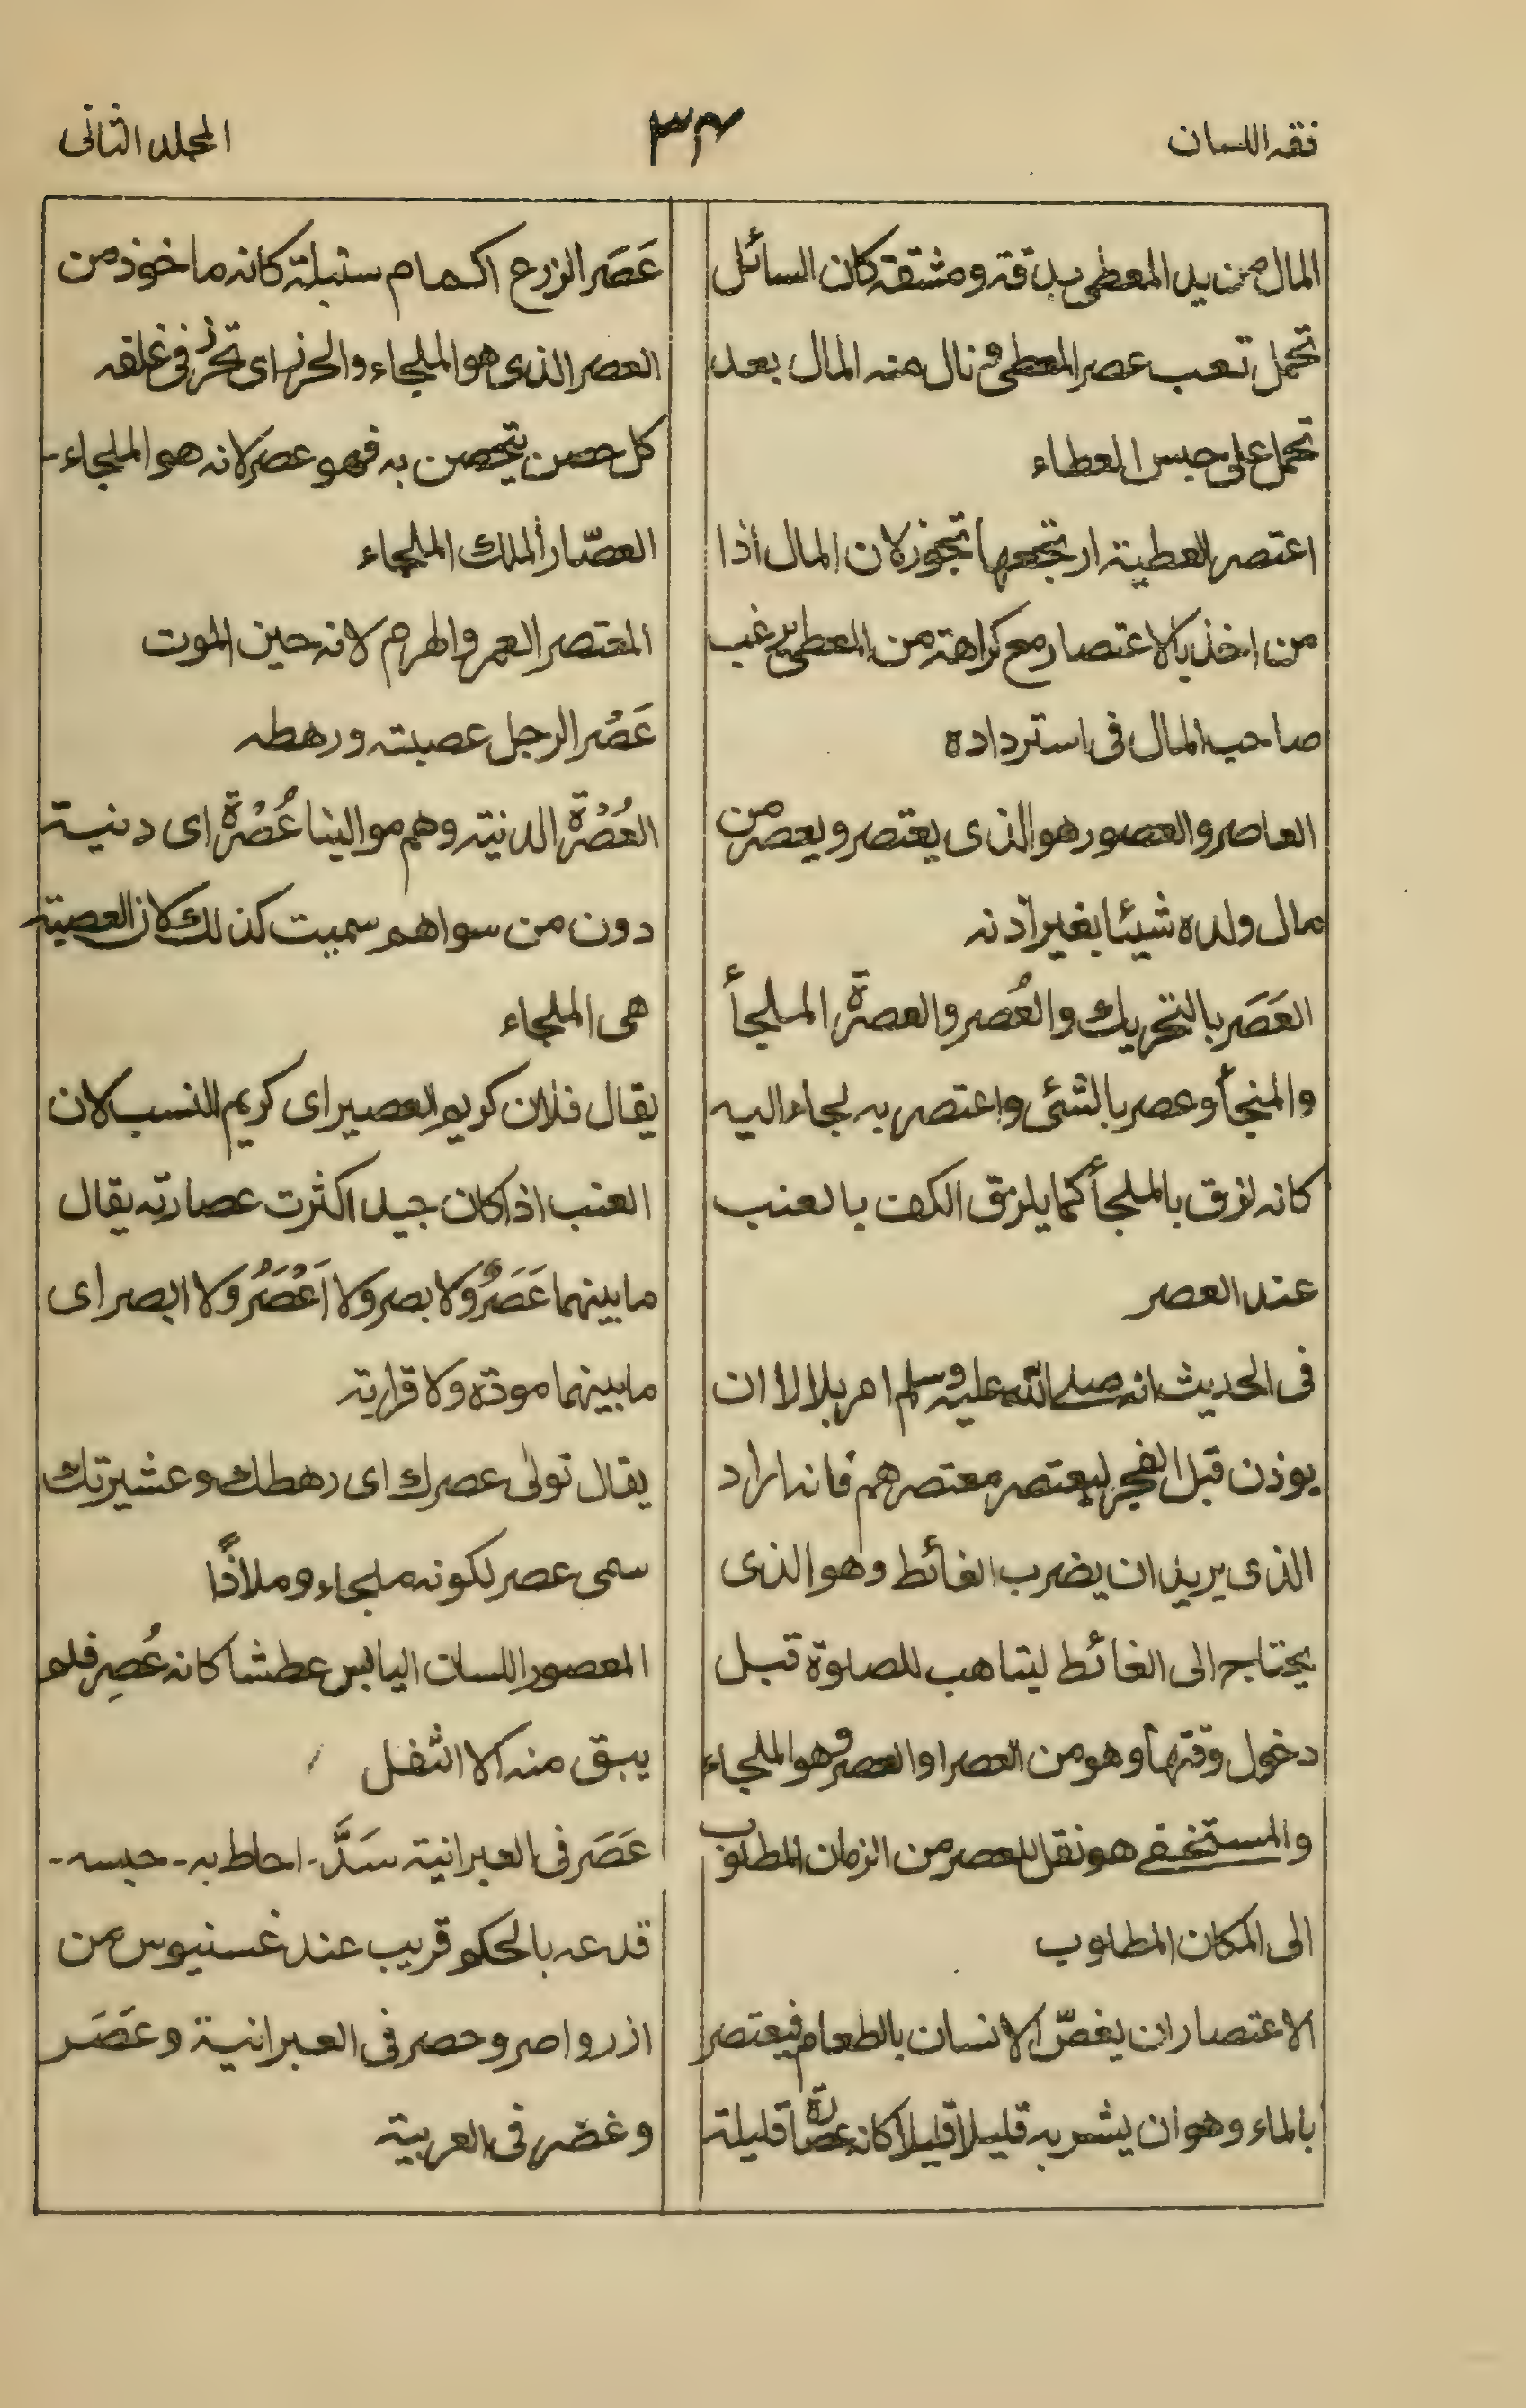 فقه اللسان
المجلد الثانی
المال من ید المعطی بدقة ومشقة کان السائل
تحمل تعب عصر المعطی ونال منه المال بعد
تحمل علی حبس العطاء
اعتصر العطیة ارتجعها تجوز لان المال اذا
من اخذ بالاعتصار مع کراهة من المعطی یرغب
صاحب المال فی استرداده
العاصر والعصور هو الذی یعتصر ویعصر من
مال ولده شیئا بغیر اذنه
العَصَر بالتحریك والعُصر والعصرة الملجأ
والمنجأ وعصر بالشئی واعتصر به لجاء الیه
کانه لزق بالملجأ کما یلزق الکف بالعنب
عند العصر
فی الحدیث انه صلی الله علیه وسلم امر بلالا ان
یوذن قبل الفجر لیعتصر معتصرهم فانه اراد
الذی یرید ان یضرب الغائط وهو الذی
یحتاج الی الغائط لیتاهب للصلوة قبل
دخول وقتها وهو من العصر او العصر وهو الملجاء
والمستخفی هو نقل العصر من الزمان المطلوب
الی المکان المطلوب
الاعتصار ان یغصّ الانسان بالطعام فیعتصر
بالماء وهو ان یشربه قلیلا قلیلا کانه عصارة قلیلة
عَصَر الزرع اکمام سنبلة کانه ماخوذ من
العصر الذی هو الملجاء والحرز ای تحرز فی غلفه
کل حصن یتحصن به فهو عصر لانه هو الملجاء -
العصّار الملك الملجاء
المعتصر العمر والهرم لانه حین الموت
عَصْر الرجل عصبته ورهطه
العُصْرة الدنیة وهم موالینا عُصْرة ای دنیة
دون من سواهم سمیت کذلك لان العصبة
هی الملجاء
یقال فلان کریم العصیر ای کریم النسب لان
العنب اذا کان جیدا کثرت عصارته یقال
ما بینهما عَصَرٌ ولا بصر ولا اَعْصَرُ ولا ابصر ای
ما بینهما مودة ولا قرابة
یقال تولی عصرك ای رهطك وعشیرتك
سمی عصر لکونه ملجاء وملاذًا
المعصور اللسان الیابس عطشا کانه عُصِر فلم
یبق منه الا الثفل
عَصَر فی العبرانیة سَدَّ - احاط به - حبسه -
قدعه بالحکم قریب عند غسنیوس من
ازر واصر وحصر فی العبرانیة وعَصَر
وغضر فی العربیة